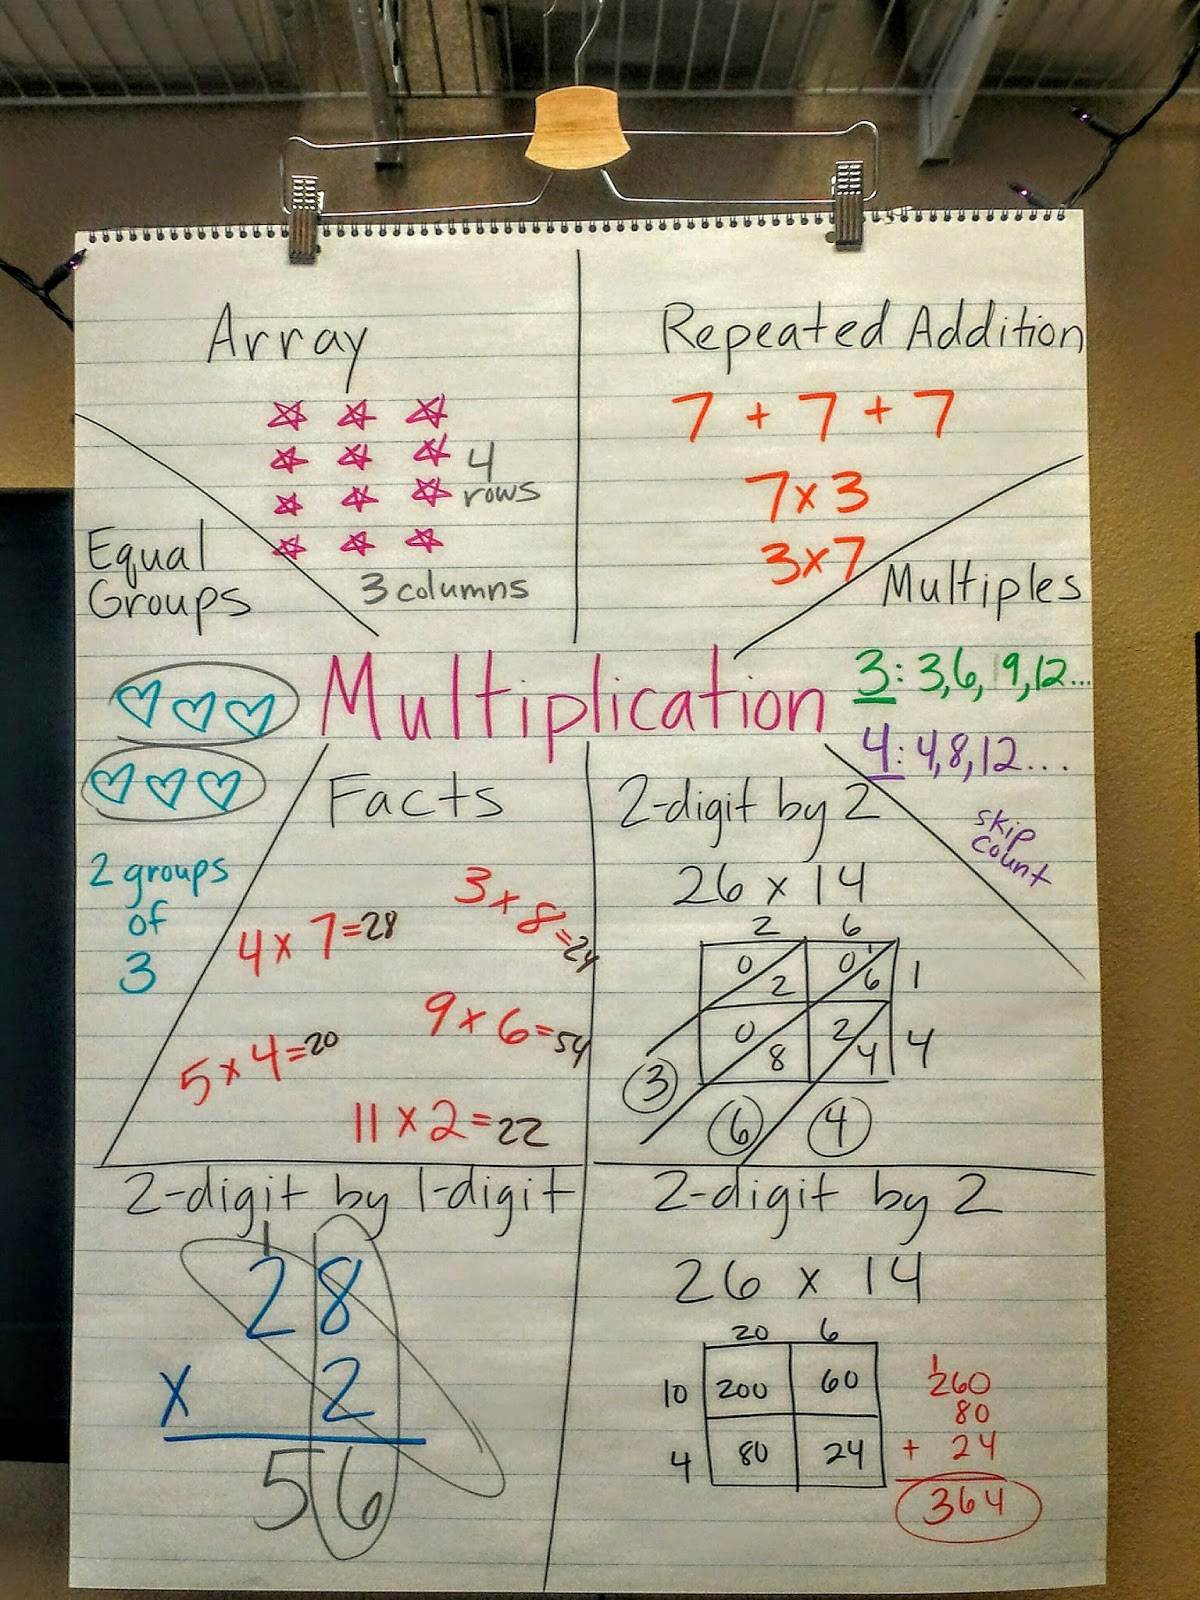 Array
4
rows
3 columns
Repeated Addition
7 + 7 + 7
7 x 3
3 x 7
Equal
Groups
2 groups
of
3
Multiplication
Multiples
3: 3, 6, 9, 12...
4: 4, 8, 12...
skip
count
Facts
3 x 8 = 24
4 x 7 = 28
9 x 6 = 54
5 x 4 = 20
11 x 2 = 22
2-digit by 2
26 x 14
2 6
0 2 0 1 6 1
0 8 2 4 4
3 6 4
2-digit by 1-digit
1
28
x 2
56
2-digit by 2
26 x 14
20 6
10 200 60
4 80 24
1
260
80
+ 24
364